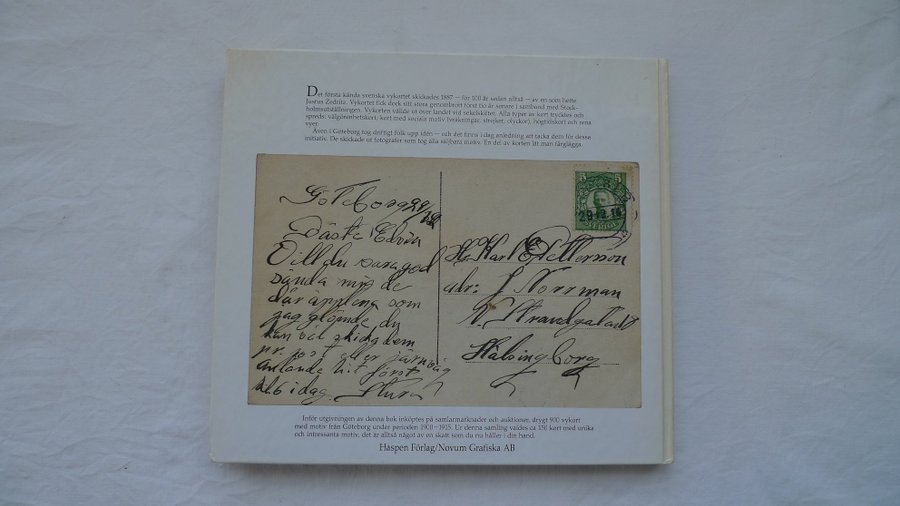 Det första kända svenska vykortet skickades 1887 — för 100 år sedan alltså — av en som hette
Justus Zedritz. Vykortet fick dock sitt stora genombrott först tio år senare i samband med Stock-
holmsutställningen. Vykorten vällde ut över landet vid sekelskiftet. Alla typer av kort trycktes och
spreds: välgörenhetskort, kort med sociala motiv (vräkningar, strejker, olyckor), högtidskort och rena
vyer.
Även i Göteborg tog driftigt folk upp idén — och det finns i dag anledning att tacka dem för desse
initiativ. De skickade ut fotografer som tog alla säljbara motiv. En del av korten lät man färglägga.
Göteborg 29/12
Bäste Edvin
Vill du vara god
sända mig de
där äpplena som
jag glömde du
kan väl skicka dem
pr. post eller järnväg
anlände hit först
kl. 6 idag. Sture
5 5
SVERIGE
29.12.
Hr. Karl E Pettersson
adr: J. Norrman
N. Strandgatan
Hälsingborg
Inför utgivningen av denna bok inköptes på samlarmarknader och auktioner, drygt 900 vykort
med motiv från Göteborg under perioden 1900—1915. Ur denna samling valdes ca 150 kort med unika
och intressanta motiv, det är alltså något av en skatt som du nu håller i din hand.
Haspen Förlag/Novum Grafiska AB